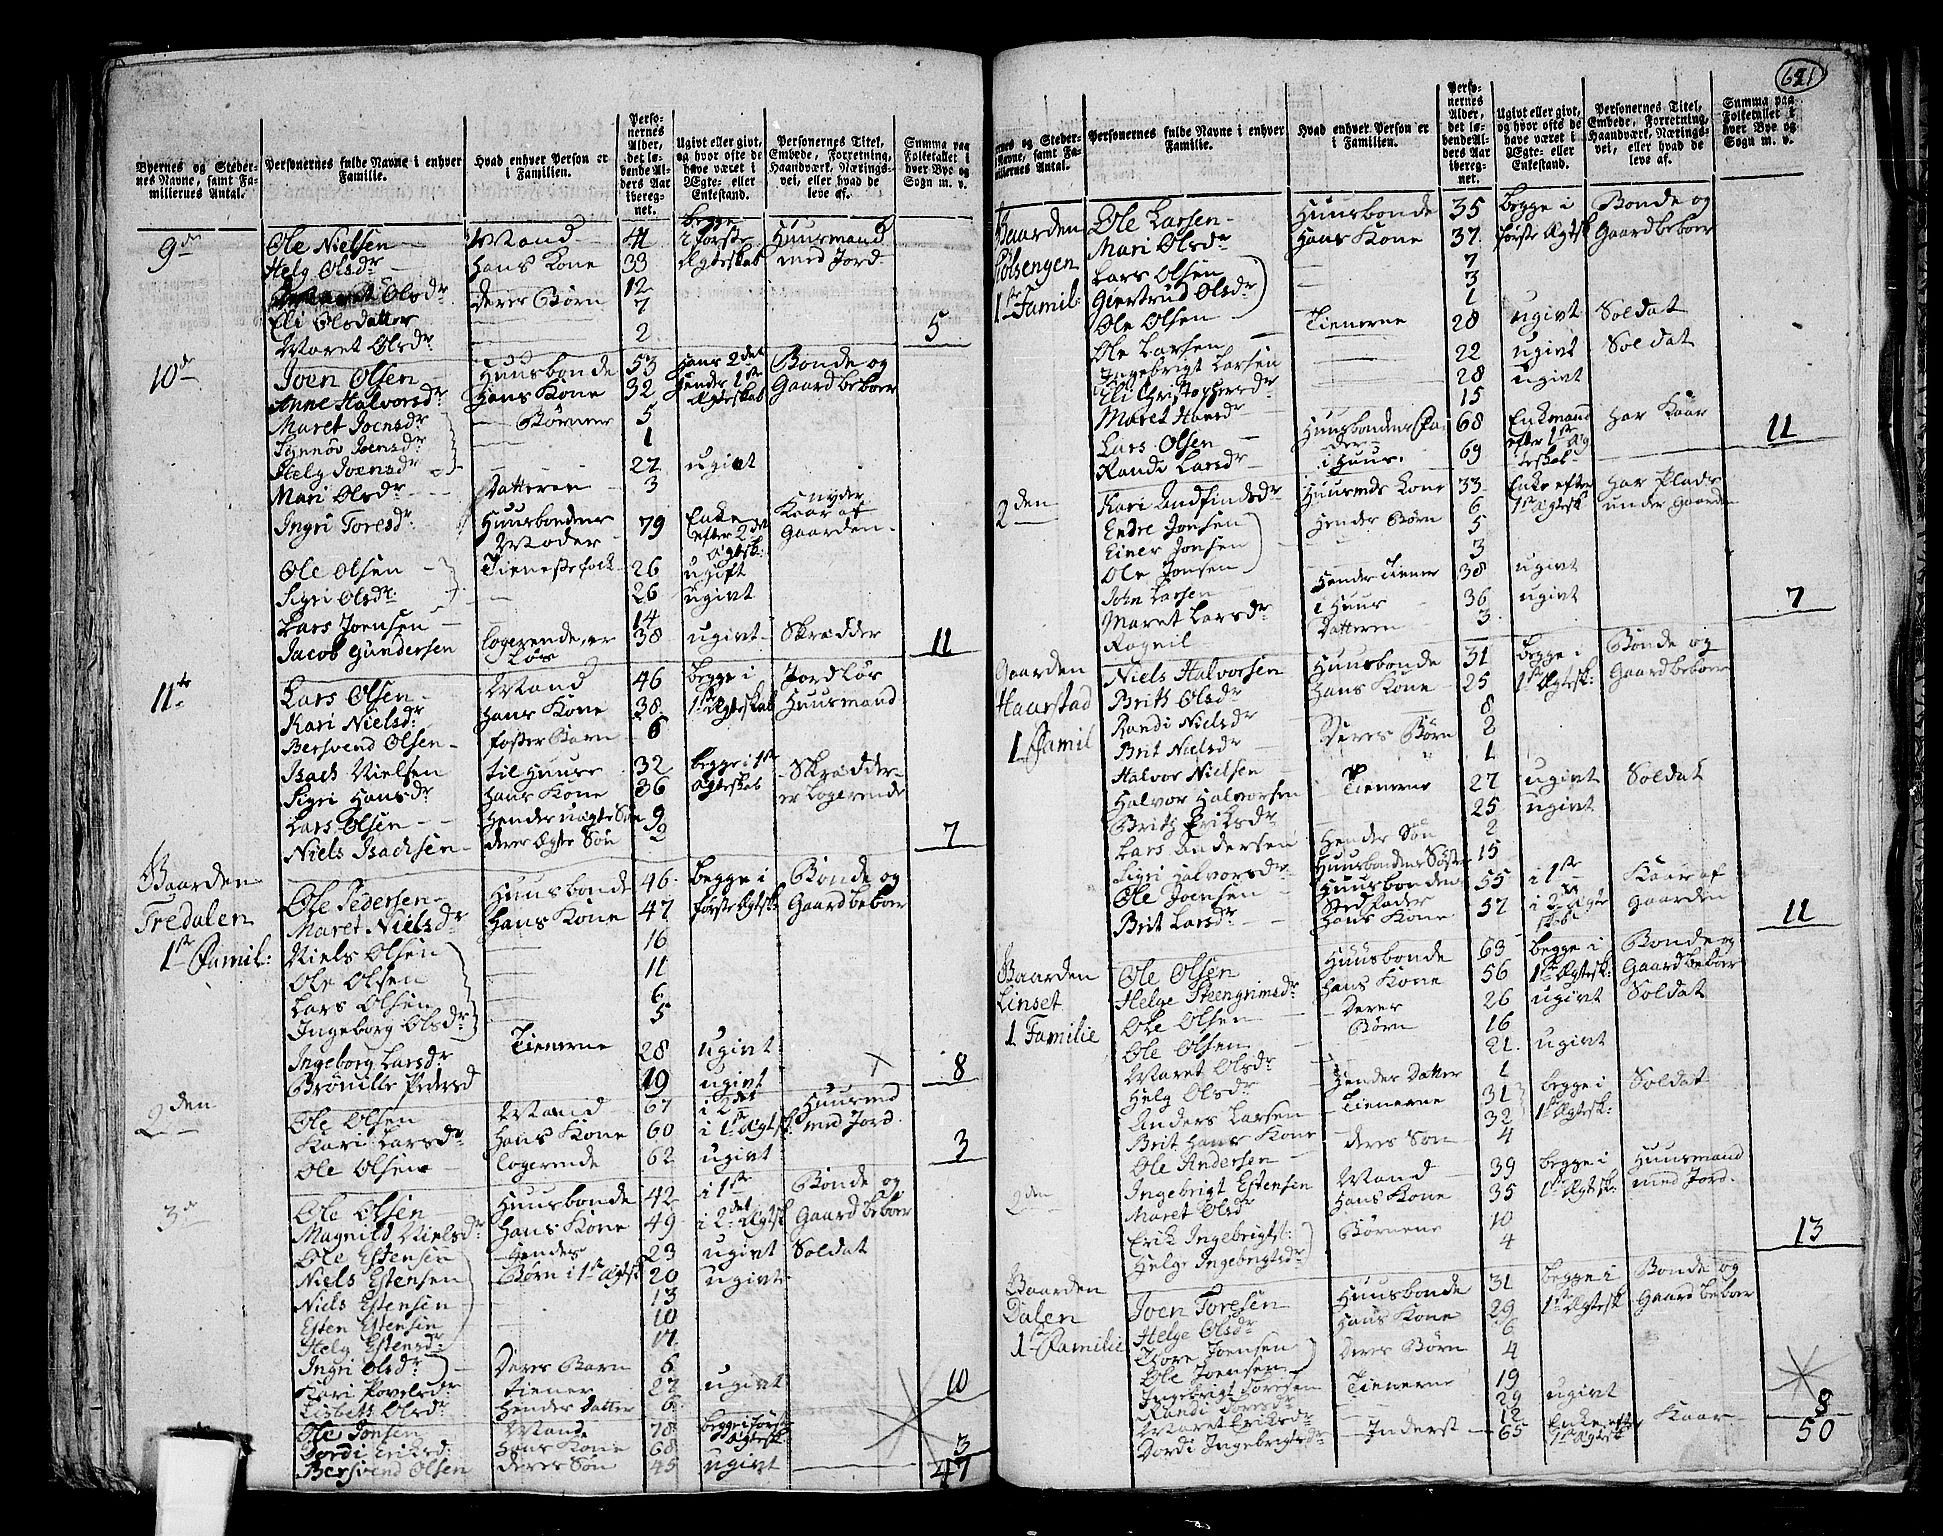 621
Byernes og Stedernes Navne, samt Familiernes Antal. | Personernes fulde Navne i enhver Familie. | Hvad enhver Person er i Familien. | Personernes Alder, det løbende Alders Aar iberegnet. | Ugivt eller givt, og hvor ofte de have været i Ægte- eller Enkestand. | Personernes Titel, Embede, Forretning, Haandværk, Næringsvei, eller hvad de leve af. | Summa paa Folketallet i hver Bye og Sogn m. v.
9de Ole Nielsen Mand 41 begge i første Huusmand
Helg Olsdr Hans Kone 33 Ægteskab med Jord
Olsdr Deres Børn 12
Eli Olsdatter 7
Maret Olsdr 2 5
10de Joen Olsen Huusbonde 53 Hans 2det Bonde og
Anne Halvorsdr Hans Kone 32 Hendes 1ste Ægteskab Gaardbeboer
Maret Joensdr Børnene 5
Synnøv Joensdr 1
Helg Joensdr
Mari Olsdr 27 ugivt
Datteren 3
Ingri Toresdr Huusbondens Moder 79 Enke efter 2det Ægtesk: nyder Kaar af Gaarden
Ole Olsen Tienestefolk 26 ugift
Sigri Olsdr 26 ugivt
Lars Joensen 14
Jacob Gundersen logerende, er Løs 38 ugivt Skrædder 11
11te Lars Olsen Mand 46 begge i Jordløs
Kari Nielsdr Hans Kone 38 1ste Ægteskab Huusmand
Bersvend Olsen foster Barn 6
Isach Nielsen til Huuse 32 begge i 1ste Skrædder
Sigri Hansdr Hans Kone 36 Ægteskab er Logerende
Lars Olsen Hendes uægte Søn 9
Niels Isachsen deres Ægte Søn 2 7
Gaarden Tredalen
1ste Famil: Ole Pedersen Huusbonde 46 begge i Bonde og
Maret Nielsdr Hans Kone 47 første Ægtsk Gaardbeboer
Niels Olsen 16
Ole Olsen 11
Lars Olsen 6
Ingeborg Olsdr 5
Ingeborg Larsdr Tienerne 28 ugivt
Brønille Pedersd 19 ugivt 8
2den Ole Olsen Mand 67 i 2det Huusmd
Kari Larsdr Hans Kone 60 i 1ste Ægtsk: med Jord
Ole Olsen logerende 62 ugivt 3
3de Ole Olsen Huusbonde 42 i 1ste Bonde og
Magnild Nielsdr Hans Kone 49 i 2det Ægtsk Gaardbeboer
Ole Estensen Hendes 23 ugivt Soldat
Niels Estensen Børn i 1ste Ægtsk 20 ugivt
Niels Estensen 13
Esten Estensen 10
Helg Estensdr 17
Ingri Olsdr Deres Barn 6
Kari Povelsdr tiener 27 ugivt
Lisbeth Olsdr Hendes Datter 6 10
Ole Jonsen Mand 78 begge i første
Jordi Eriksd: Hans Kone 68 Ægtesk:
Bersvend Olsen deres Søn 45 ugivt 3
47
Byernes og Stedernes Navne, samt Familiernes Antal. | Personernes fulde Navne i enhver Familie. | Hvad enhver Person er i Familien. | Personernes Alder, det løbende Alders Aar iberegnet. | Ugivt eller givt, og hvor ofte de have været i Ægte- eller Enkestand. | Personernes Titel, Embede, Forretning, Haandværk, Næringsvei, eller hvad de leve af. | Summa paa Folketallet i hver Bye og Sogn m. v.
Gaarden Ole Larsen Huusbonde 35 begge i Bonde og
Mari Olsdr Hans Kone 37 første Ægtsk Gaardbeboer
Lars Olsen 7
1ste Famil: Giertrud Olsdr 3
Ole Olsen 1
Ole Larsen Tienerne 28 ugivt Soldat
Ingebrigt Larsen 22 ugivt Soldat
Eli Christophersdr 28 ugivt
Maret Hansdr 15
Lars Olsen Huusbondens Fader 68 Enkemand efter 1ste Ægteskab har Kaar
Randi Larsdr i Huus 69 11
2den Kari Andfindsdr Huusmds Kone 33 Enke efter har Plads
Endre Jonsen Hendes Børn 6 1ste Ægtesk under Gaarden
Einer Jonsen 5
Ole Jonsen 3
John Larsen Hendes Tiener 38 ugivt
Maret Larsdr i Huus 36 ugivt
Ragnil Datteren 3 7
Gaarden Haarstad
1 Famil Niels Halvorsen Huusbonde 31 begge i Bonde og
Brith Olsdr Hans Kone 25 1ste Ægtesk: Gaardbeboer
Randi Nielsdr 8
Brit Nielsdr Deres Børn 2
Halvor Nielsen 1
Halvor Halvorsen Tienerne 27 ugivt Soldat
Brith Eriksdr 25 ugivt
Lars Andersen Hendes Søn 2
Sigri Halvorsdr Huusbondens Søster 15
Ole Joensen Huusbondens Stedfader 55 i 1ste Kaar af
Brit Larsdr Hans Kone 57 i 2det Ægteskab Gaarden 11
Gaarden Linset
1 Familie Ole Olsen Huusbonde 63 begge i Bonde og
Helge Steengrimsdr Hans Kone 56 1ste Ægtesk: Gaardbeboer
Ole Olsen Deres 26 ugivt Soldat
Ole Olsen Børn 16
Maret Olsdr 21 ugivt
Helg Olsdr Hendes Datter 1
Anders Larsen Tienerne 31 begge i Soldat
Brit hans Kone 32 1ste Ægtesk:
Ole Andersen deres Søn 4
2den Ingebrigt Estensen Mand 39 begge i Huusmand
Maret Olsdr Hans Kone 35 1ste Ægtsk: med Jord
Erik Ingebrigts: Børnene 10
Helge Ingebrigtsdr 4 13
Gaarden Dalen
1ste Familie Joen Toresen Huusbonde 31 begge i Bonde og
Helge Olsdr Hans Kone 29 1ste Ægtesk Gaardbeboer
Tore Joensen Deres Børn 6
Ole Joensen 4
Ingebrigt Toresen Tienerne 19
Randi Toresdr 29 ugivt
Maret Eriksdr 12
Jordi Ingebrigtsdr Inderst 65 Enke efter 1ste Ægtesk Kaar 8
50